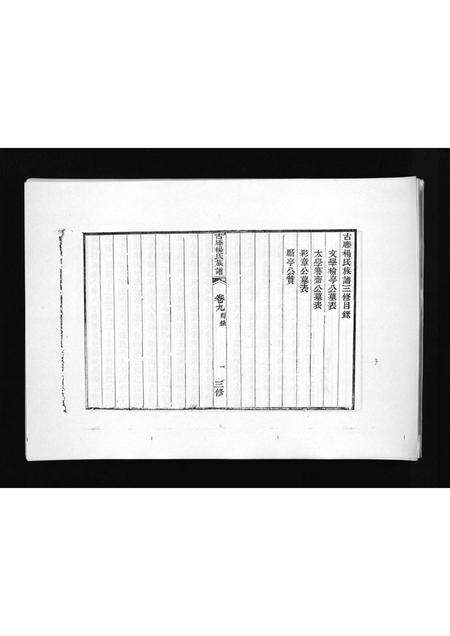 古塍楊氏族譜三修目錄
文學檢亭公墓表
太學春齋公墓表
彩章公墓表
願亭公贊
古塍楊氏族譜
卷九
目錄
一
三修